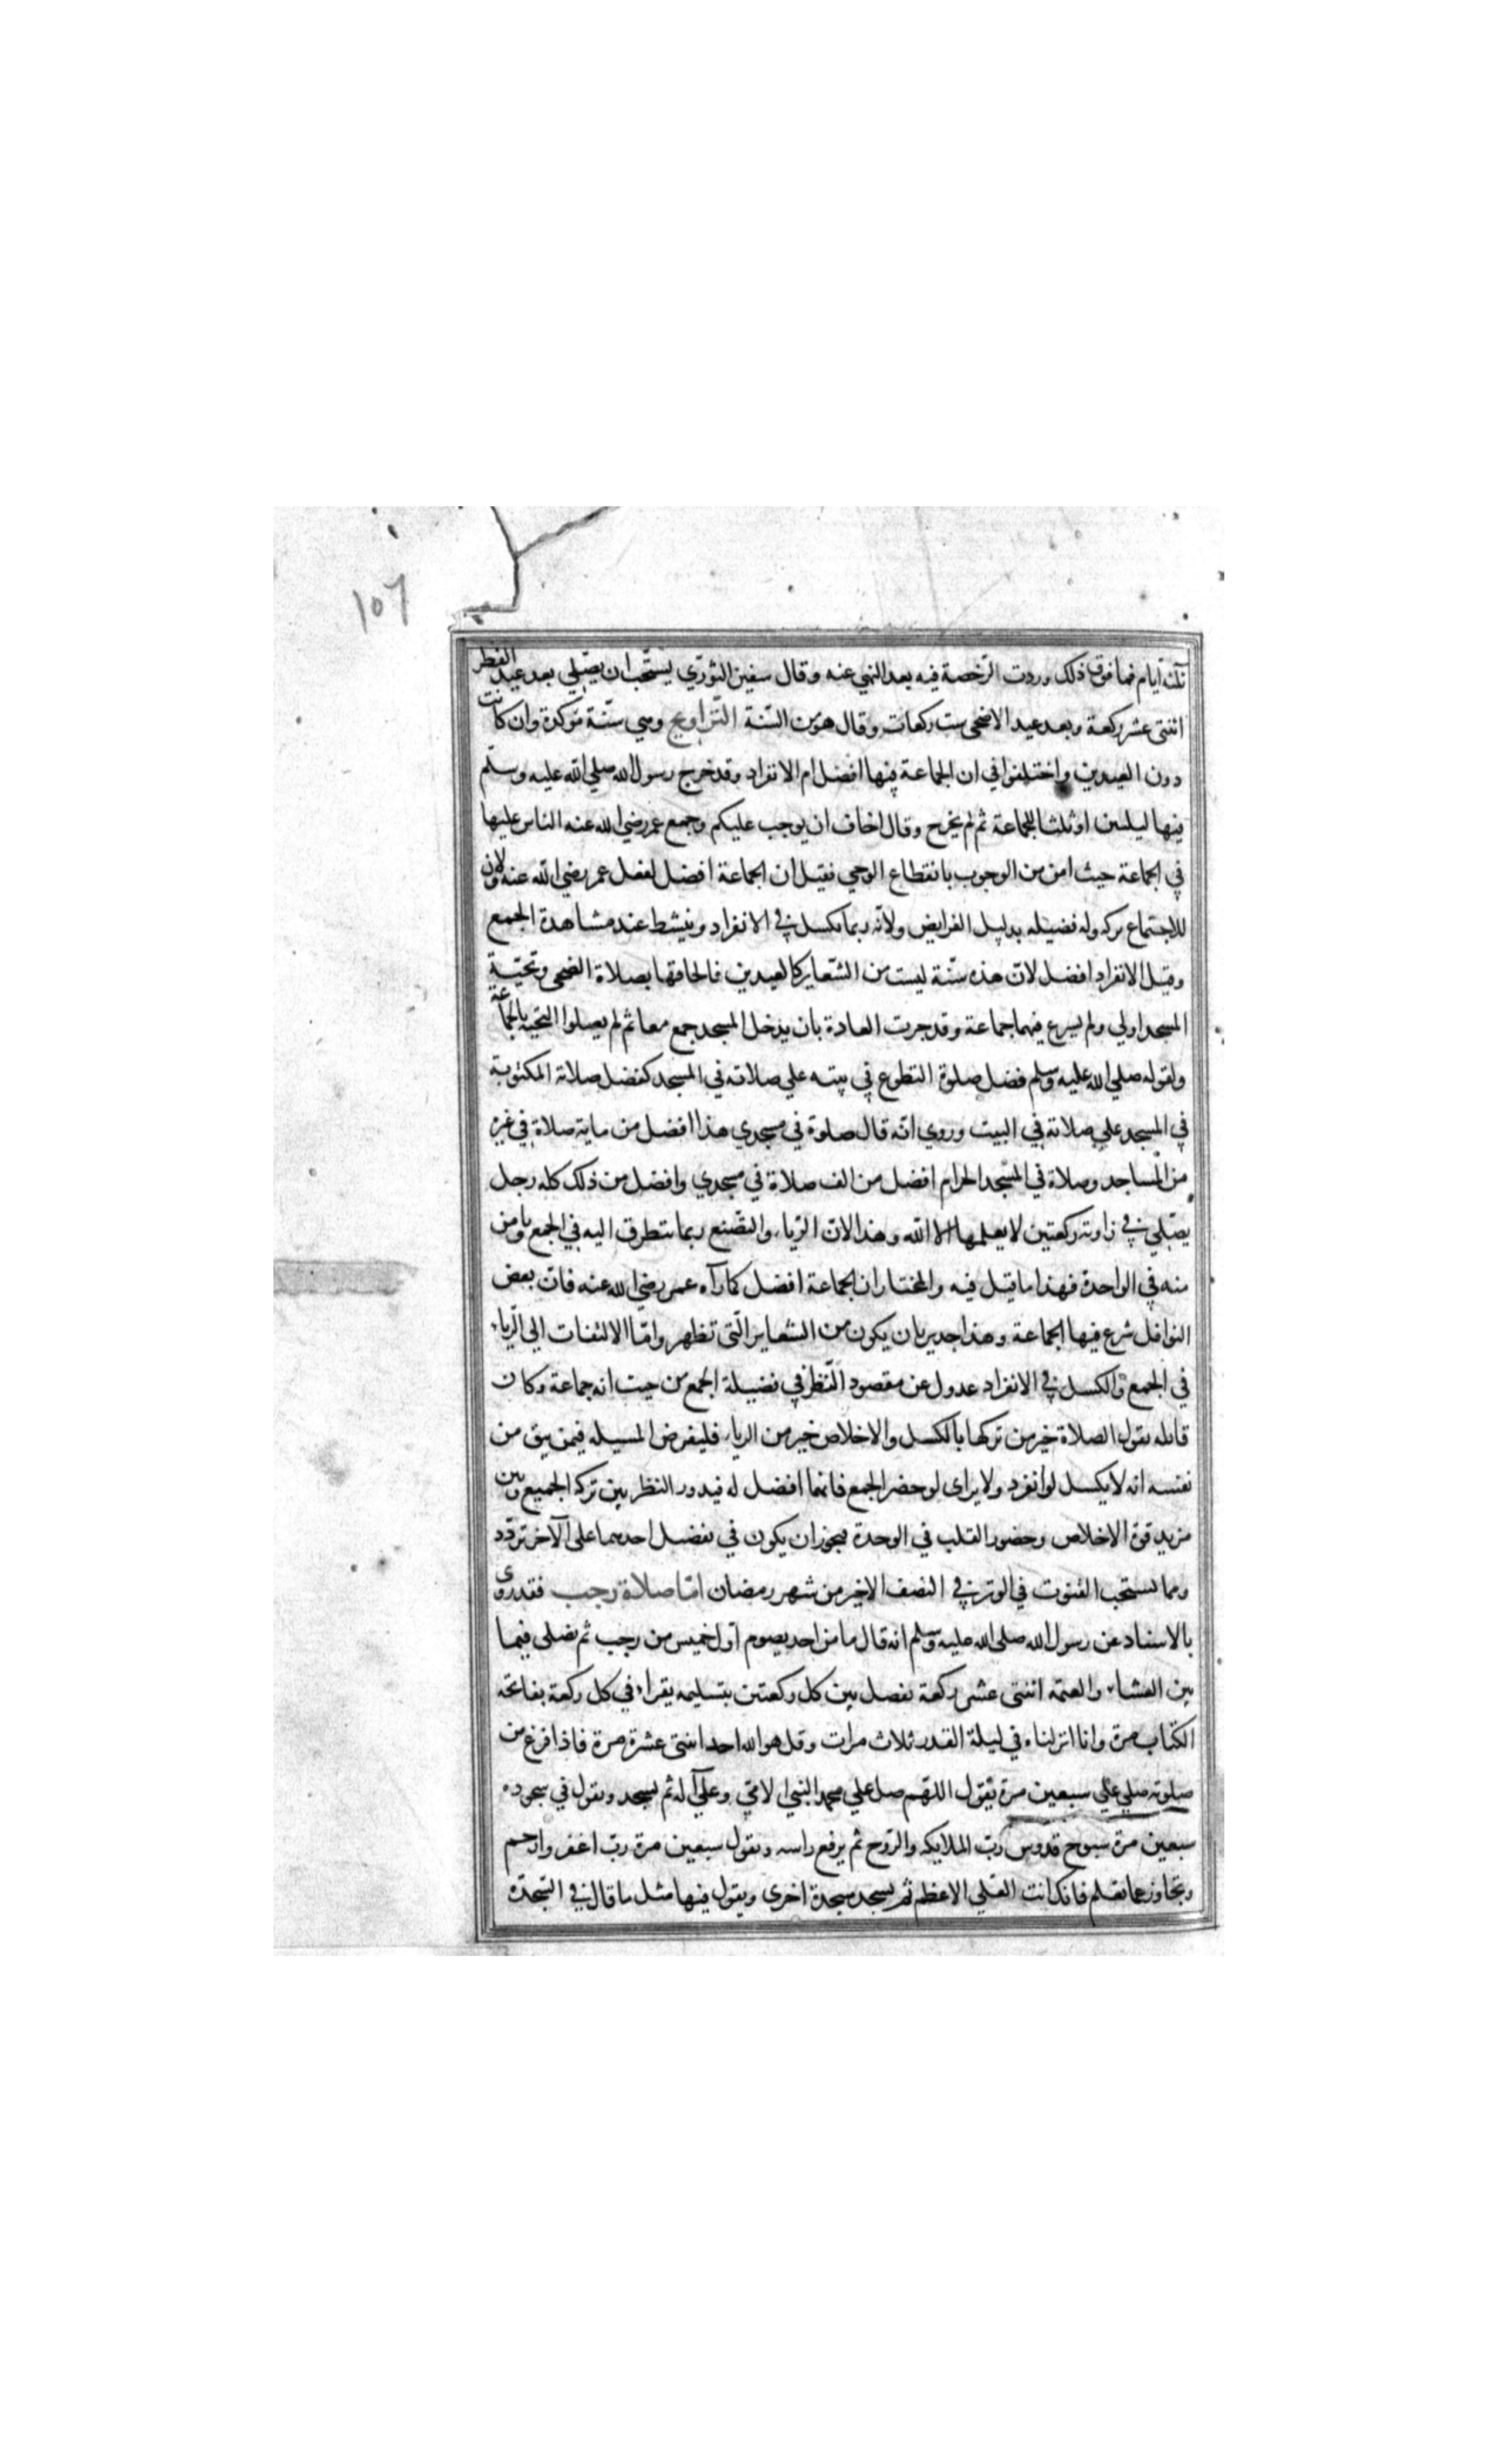 ١٥٦
ثلثة ايام فما فوق ذلك وردت الرّخصة فيه بعد النهي عنه وقال سفين الثوريّ يستحّب ان يصّلي بعد عيد الفطر
اثنتى عشر ركعة وبعد عيد الاضحى ست ركعات وقال هو من السّنة التّراويح وهي سنّة مؤكدة وان كانت
دون العيدين واختلفوا في ان الجماعة فيها افضل ام الانفراد وقد خرج رسول الله صلي الله عليه وسلّم
فيها ليلتين او ثلثا للجماعة ثم لم يخرج وقال اخاف ان يوجب عليكم وجمع عمر رضي الله عنه الناس عليها
في الجماعة حيث امن من الوجوب بانقطاع الوحي فقيل ان الجماعة افضل لفعل عمر رضي الله عنه ولان
للاجتماع بركه وله فضيله بدليل الفرايض ولانّه ربما يكسل في الانفراد وينشط عند مشاهدة الجمع
وقيل الانفراد افضل لانّ هذه سنّة ليست من الشّعاير كالعيدين فالحاقها بصلاة الضحى وتحيّة
المسجد اولي ولم يشرع فيهما جماعة وقد جرت العادة بان يدخل المسجد جمع معا ثم لم يصلوا التحية بالجماعة
ولقوله صلي الله عليه وسلم فضل صلوة التطوع في بيته علي صلاته في المسجد كفضل صلاة المكتوبة
في المسجد علي صلاته في البيت وروي انّه قال صلوة في مسجدي هذا افضل من ماية صلاة في غيره
من المساجد وصلاة في المسجد الحرام افضل من الف صلاة في مسجدي وافضل من ذلك كله رجل
يصّلي في زاوية ركعتين لا يعلمها الا الله وهذا لان الرّياء والتصّنع ربما يتطرق اليه في الجمع ويامن
منه في الواحدة فهذا ما قيل فيه والمختار ان الجماعة افضل كما رآه عمر رضي الله عنه فانّ بعض
النوافل شرع فيها الجماعة وهذا جدير بان يكون من الشعاير الّتى تظهر وامّا الالتفات الي الرّياء
في الجمع والكسل في الانفراد عدول عن مقصود النّظر في فضيلة الجمع من حيث انه جماعة وكان
قايله يقول الصلاة خير من تركها بالكسل والاخلاص خير من الرياء فليفرض المسيله فيمن يثق من
نفسه انه لا يكسل لو انفرد ولا يراى لو حضر الجمع فايهما افضل له فيدور النظر بين بركة الجميع وبين
مزيد قوة الاخلاص وحضور القلب في الوحدة فيجوز ان يكون في تفضيل احدهما على الآخر تردّد
ومما يستحب القنوت في الوتر في النصف الاخير من شهر رمضان امّا صلاة رجب فقد روى
بالاسناد عن رسول الله صلى الله عليه وسلم انه قال ما من احد يصوم اوّل خميس من رجب ثم يصلى فيما
بين العشاء والعتمه اثنتى عشر ركعة يفصل بين كل ركعتين بتسليمه يقراء في كل ركعة بفاتحة
الكتاب مرة وانا انزلناه في ليلة القدر ثلاث مرات وقل هو الله احد اثنتى عشرة مرة فاذا فرغ من
صلوته صلي علي سبعين مرة يقول اللهم صل علي محمد النبي الامي وعلي آله ثم يسجد ويقول في سجوده
سبعين مرة سبوح قدوس ربّ الملايكه والرّوح ثم يرفع راسه ويقول سبعين مرة ربّ اغفر وارحم
وتجاوز عما تعلم فانك انت العلي الاعظم ثم يسجد سجدة اخرى ويقول فيها مثل ما قال في السّجدة